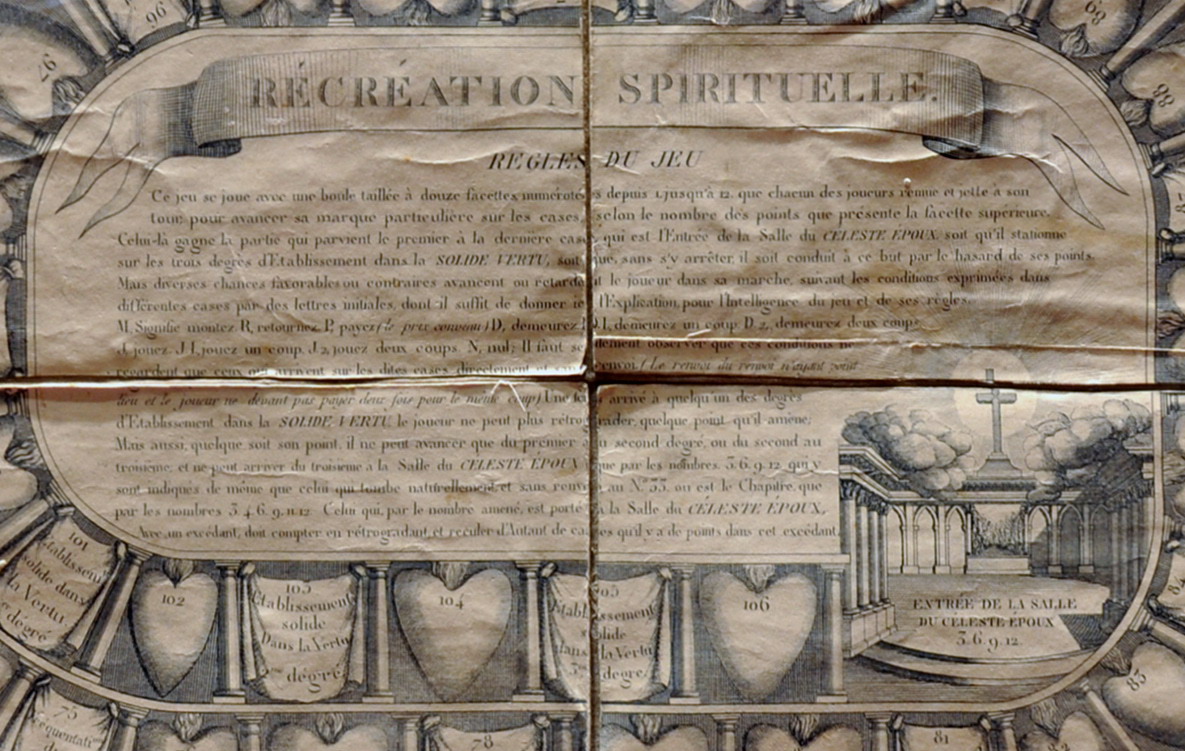 96
97
69
68
RÉCRÉATION SPIRITUELLE.
RÈGLES DU JEU
Ce jeu se joue avec une boule taillée à douze facettes, numérotées depuis 1, jusqu'à 12. que chacun des joueurs remue et jette à son
tour, pour avancer sa marque particulière sur les cases, selon le nombre des points que présente la facette supérieure.
Celui-là gagne la partie qui parvient le premier à la dernière case qui est l'Entrée de la Salle du CELESTE EPOUX, soit qu'il stationne
sur les trois degrés d'Etablissement dans la SOLIDE VERTU, soit que, sans s'y arrêter, il soit conduit à ce but par le hasard de ses points.
Mais diverses chances favorables ou contraires avancent ou retardent le joueur dans sa marche, suivant les conditions exprimées dans
différentes cases par des lettres initiales, dont il suffit de donner ici l'Explication, pour l'Intelligence du jeu et de ses règles.
M. Signifie montez R, retournez P, payez (le prix convenu) D, demeurez D.1, demeurez un coup D 2, demeurez deux coups
J, jouez J 1, jouez un coup, J 2, jouez deux coups. N, nul; Il faut seulement observer que ces conditions ne
regardent que ceux qui arrivent sur les dites cases directement et sans renvoi (Le renvoi du renvoi n'ayant point
lieu et le joueur ne devant pas payer deux fois pour le même coup) Une fois arrivé à quelqu'un des degrés
d'Etablissement dans la SOLIDE VERTU, le joueur ne peut plus rétrograder, quelque point qu'il amène;
Mais aussi, quelque soit son point, il ne peut avancer que du premier au second degré, ou du second au
troisième, et ne peut arriver du troisième a la Salle du CELESTE EPOUX que par les nombres. 3. 6. 9. 12. qui y
sont indiqués de même que celui qui tombe naturellement et sans renvoi au N° 33, ou est le Chapitre, que
par les nombres 3 4 6. 9. 11 12 Celui qui, par le nombre amené, est porté à la Salle du CÉLESTE ÉPOUX,
Avec un excédant, doit compter en rétrogradant et reculer d'Autant de cases qu'il y a de points dans cet excédant.
ENTRÉE DE LA SALLE
DU CELESTE EPOUX
3. 6. 9. 12.
101
Etablissemt
solide dans
la Vertu
1er degré
102
103
Etablissement
solide
Dans la Vertu
2me dégré
104
105
Etablissement
solide
dans la Vertu
3me degré
106
83
75
78
81